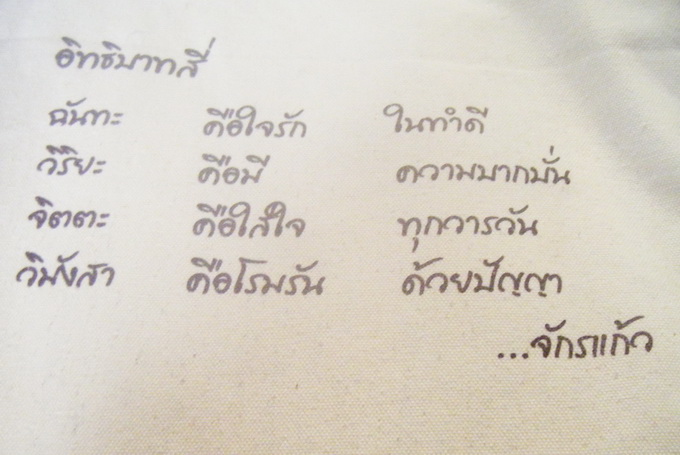 อิทธิบาทสี่
ฉันทะ คือใจรัก ในทำดี
วิริยะ คือมี ความบากบั่น
จิตตะ คือใส่ใจ ทุกวารวัน
วิมังสา คือโรมรัน ด้วยปัญญา
...จักรแก้ว